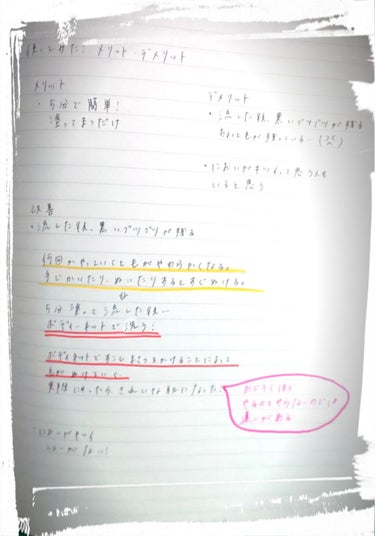 使ってみた！メリット・デメリット
メリット
・5分で簡単！
塗ってまつだけ
デメリット
・流した後、黒いブツブツが残る
・においがキツイって思う人も
いると思う
改善
・流した後、黒いブツブツが残る
何回かやっていくと毛がやわらかくなる。
手でかいたり、ぬいたりするとすぐぬける。
5分塗って流した後に
ボディーネットで洗う！
ボディネットですこしまさつをかけることによって
毛がぬけていく
実際にやったら、きれいな肌になった！
おどろくほど
やるのとやらないのでは
違いがある
・においがキツイ